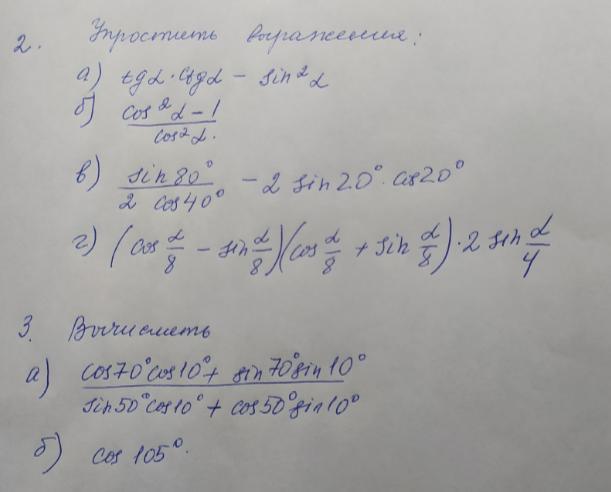 2. Упростить выражения:
а) tgα·ctgα − sin²α
б) (cos²α − 1)/(cos²α.)
в) sin80°/(2 cos40°) − 2 sin20°·cos20°
г) (cos α/8 − sin α/8)(cos α/8 + sin α/8)·2 sin α/4
3. Вычислить
а) (cos70°cos10° + sin70°sin10°)/(sin50°cos10° + cos50°sin10°)
б) cos 105°.